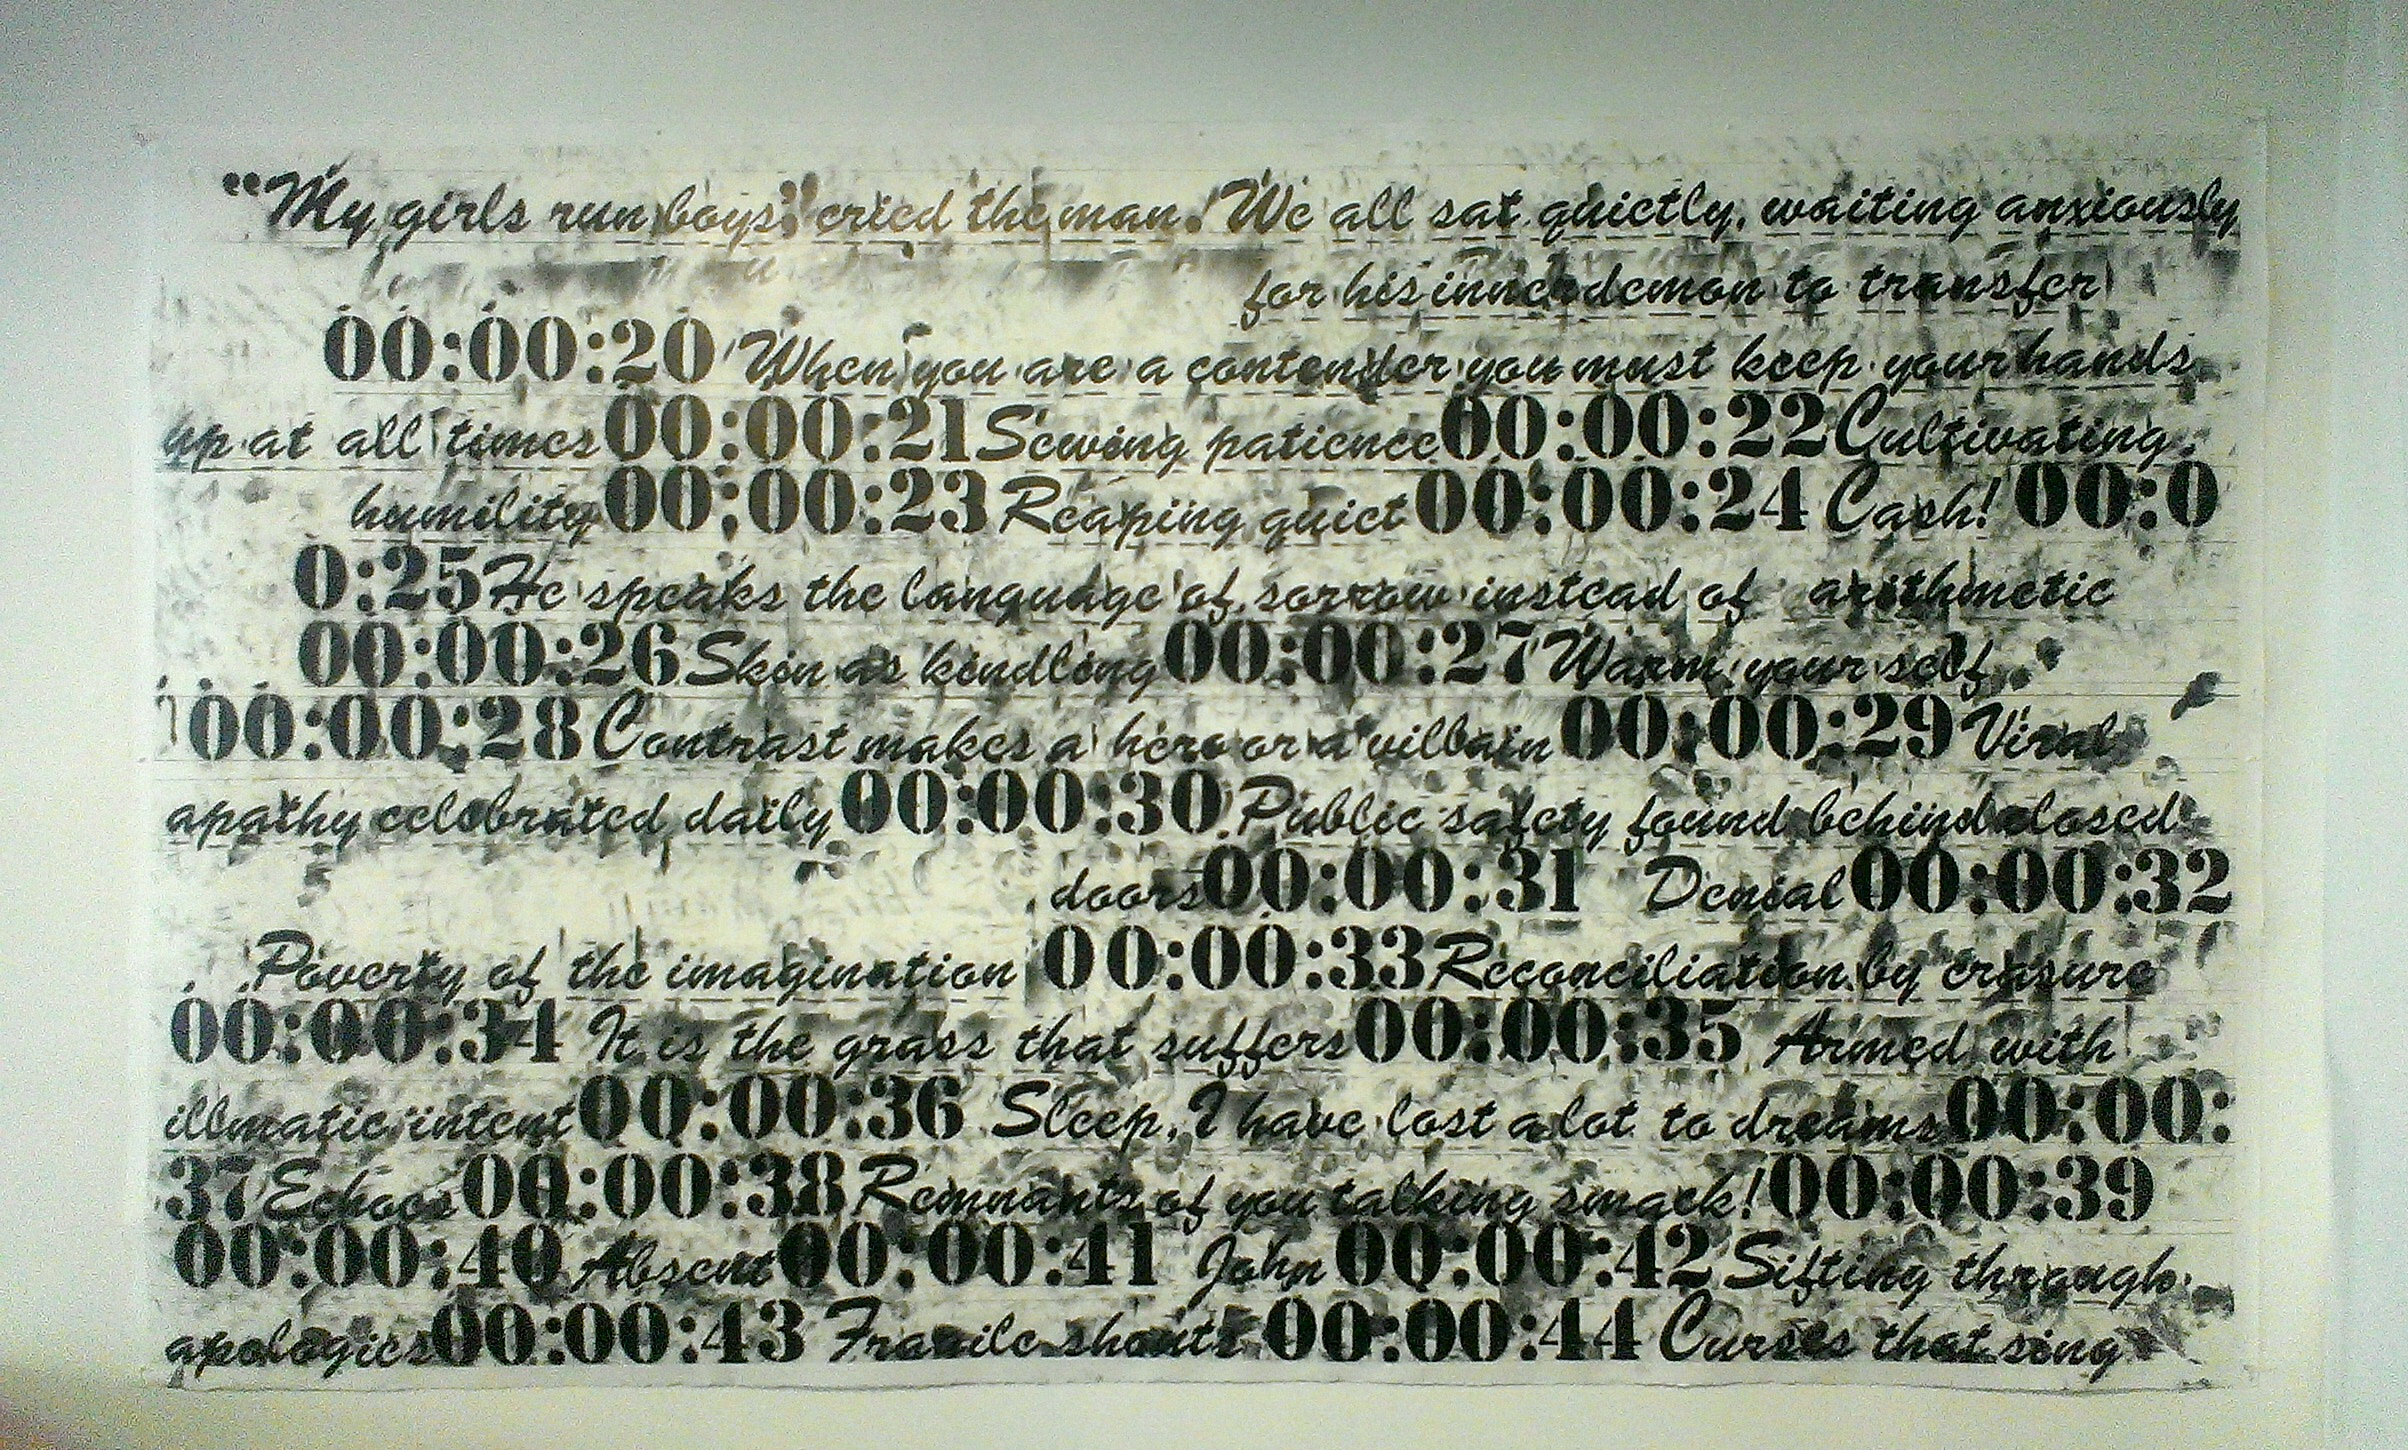 "My girls run boys," cried the man. We all sat quietly, waiting anxiously
for his inner demon to transfer
00:00:20 When you are a contender you must keep your hands
up at all times 00:00:21 Sewing patience 00:00:22 Cultivating
humility 00:00:23 Reaping quiet 00:00:24 Cash! 00:0
0:25 He speaks the language of sorrow instead of arithmetic
00:00:26 Skin as kindling 00:00:27 Warm your self
00:00:28 Contrast makes a hero or a villain 00:00:29 Viral
apathy celebrated daily 00:00:30 Public safety found behind closed
doors 00:00:31 Denial 00:00:32
Poverty of the imagination 00:00:33 Reconciliation by erasure
00:00:34 It is the grass that suffers 00:00:35 Armed with
illmatic intent 00:00:36 Sleep, I have lost a lot to dreams 00:00:
37 Echoes 00:00:38 Remnants of you talking smack! 00:00:39
00:00:40 Absent 00:00:41 John 00:00:42 Sifting through
apologies 00:00:43 Fragile shouts 00:00:44 Curses that sing